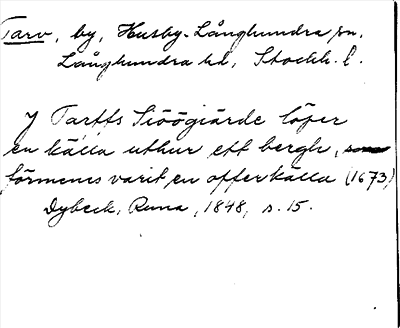 Tarv, by, Husby-Långhundra sn,
Långhundra hd, Stockh. l.
J Tarffs Siöögiärde löper
en källa uthur ett bergh, som
förmenes varit en offerkälla (1673)
Dybeck, Runa, 1848, s. 15.